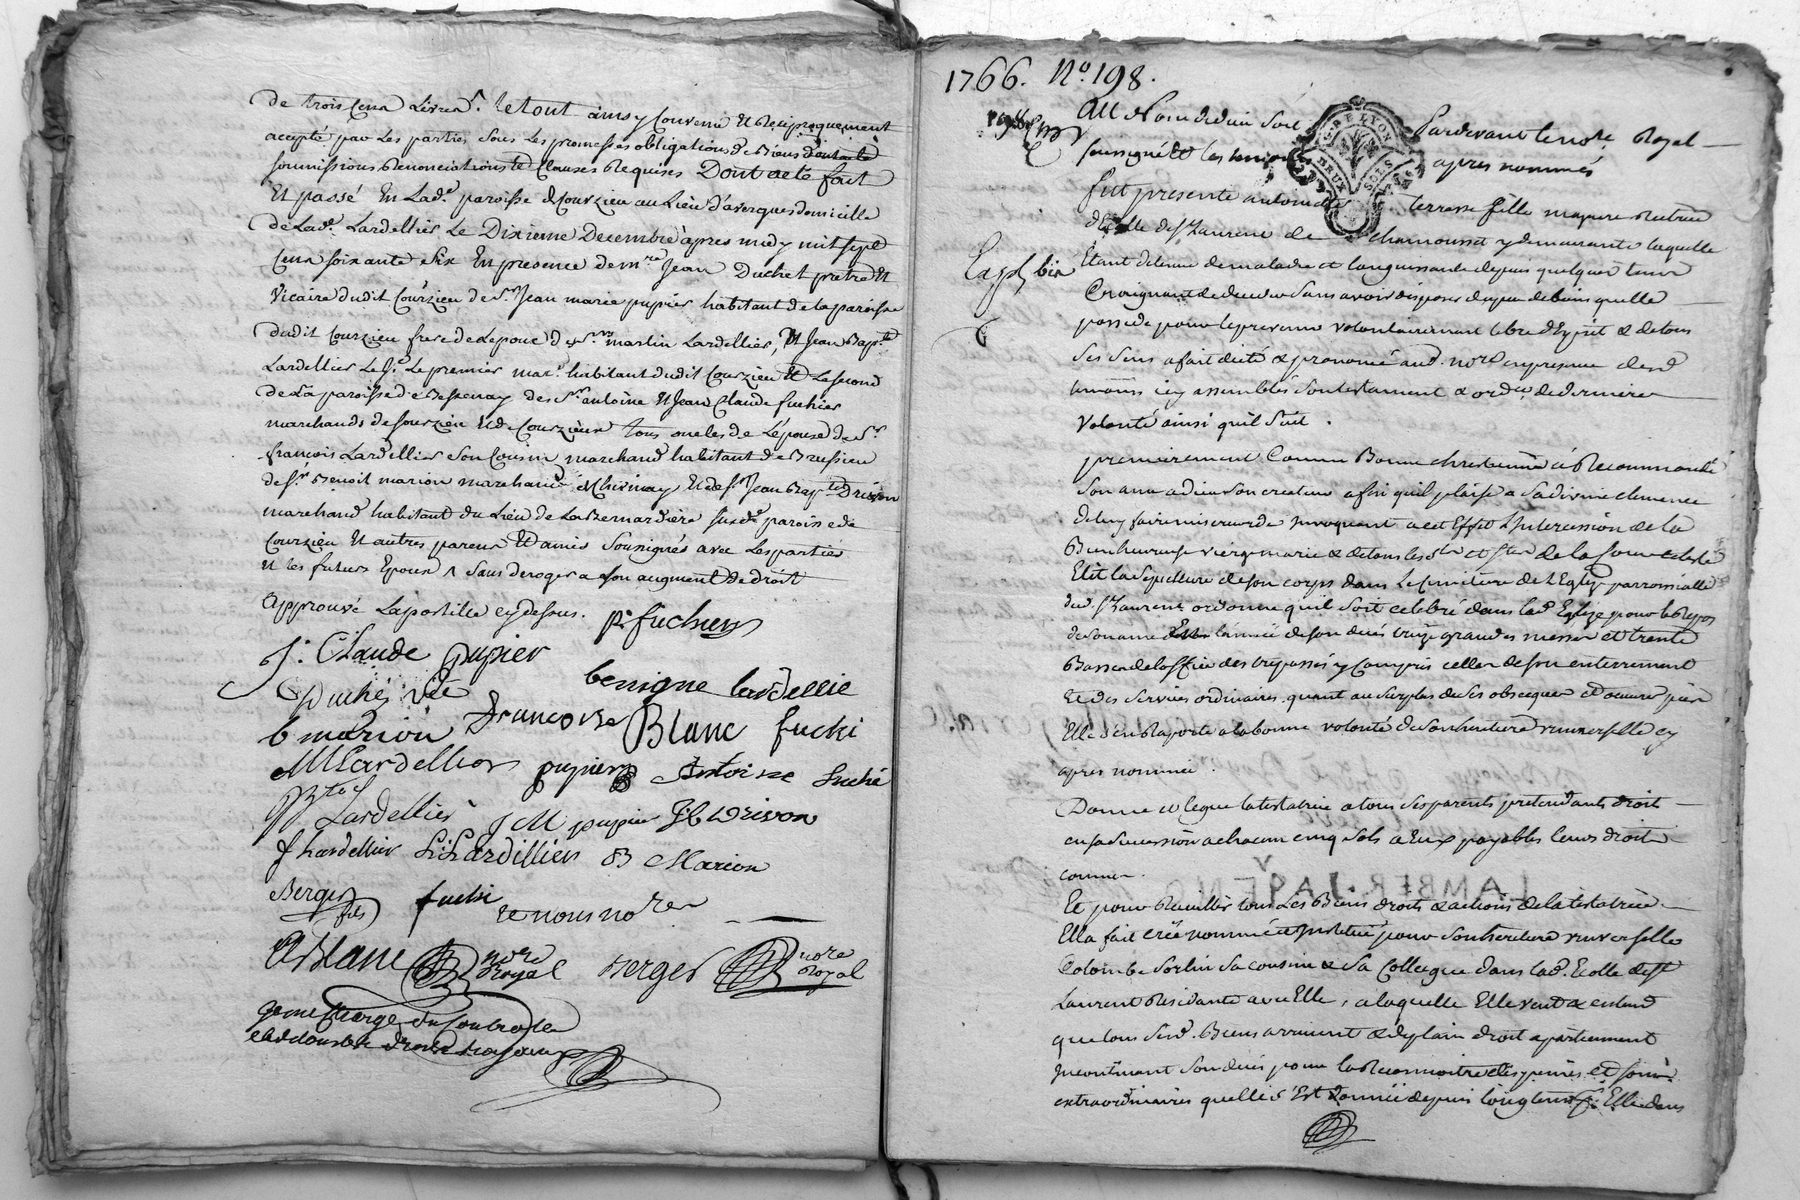 de trois Cens Livres. Le tout ainsy Convenu Et Reciproquement
accepté par Les parties sous Les promesses obligations de Biens
soumissions Renonciations Et Clauses Requises Dont acte fait
Et passé En Lad. paroisse de Courzieu au Lieu d'averques domicille
de Lad. Lardellier Le Dixieme Decembre apres midy mil sept
Cens soixante Six En presence de mre Jean Duchet pretre Et
Vicaire dudit Courzieu de Sr. Jean marie pupier habitant de la paroisse
dudit Courzieu frere de L'epouse de Sr. martin Lardellier, Et Jean Bapte
Lardellier Le Je. Le premier mar. habitant dudit Courzieu Et Le second
de La paroisse de Bessenay des Sr. antoine Et Jean Claude fuchier
marchands de Courzieu tous oncles de L'epouse de Sr.
françois Lardellier Son Cousin marchand habitant de Brussieu
de Sr. Benoit marion marchand de Chevinay Et de Sr. Jean Bapte Drivon
marchand habitant du Lieu de La Bernardière susd. paroisse de
Courzieu Et autres parens Et amis Soussignés avec Les parties
Et les futurs Epoux sans deroger a son augment de droit
Approuvé La postille cy dessus. p. fuchier
J. Claude pupier
Duché vre benigne Lardellie
b marion Francoise Blanc fuchi
MLardellier pupier Antoine Fuché
JBte Lardellier JM pupier JB Drivon
J Lardellier Lardillier B Marion
Berger fils fuchi et nous nore
ABlanc nore Royal Berger nore Royal
1766. No. 198.
Au Nom de dieu Soit Pardevant le nore. Royal
soussigné Et les temoins apres nommés
GE. DE LYON
DEUX SOLS
fut presente terrasse fille majeure Rectrice
d'Ecolle de St Laurent de chamousset y demeurante laquelle
Etant detenue de maladie et languissante depuis quelque tems
Craignant de deceder Sans avoir disposé du peu de biens quelle
possede pour le prevenir volontairement libre d'Esprit & de tous
Ses Sens a fait dicté & prononcé aud. nore. en presence desd.
temoins icy assemblés Son testament & ord. de derniere
Volonté ainsi quil Suit.
premierement Comme Bonne chretienne a Recommandé
Son ame a dieu Son createur afin quil plaise a Sa divine clemence
de luy faire misericorde invoquant a cet Effet L'intercession de la
Bienheureuse vierge marie & de tous les Sts et Stes de la Cour celeste
Elit La Sepulture de Son corps dans Le Cimetiere de L'Eglize parroissialle
dud. St Laurent ordonne quil Soit celebré dans lad. Eglize pour le Repos
de Son ame dans l'année de Son decés treize grandes messes et trente
Basses de l'office des trepassés y Compris celles de Son enterrement
Et des Services ordinaires. quant au Surplus de Ses obseques et oeuvres pies
Elle S'en Raporte a la bonne volonté de Son heritiere universelle cy
apres nommée.
Donne et legue la testatrice a tous Ses parents pretendants droit
en Sa Succession a chacun cinq Sols a Eux payables leurs droit
connu.
Et pour Recueillir tous Les Biens droits & actions de la testatrice
Elle fait créé nommé et Institué pour Son heritiere universelle
Colombe Sorlin Sa cousine & Sa Collegue dans lad. Ecolle de St
Laurent Residante avec Elle, a laquelle Elle veut & entend
que tous Sesd. Biens arrivent & de plain droit apartiennent
incontinant Son decés pour la Reconnoitre des peines et Soins
extraordinaires quelle S'Est donnée depuis longtems Elle dans